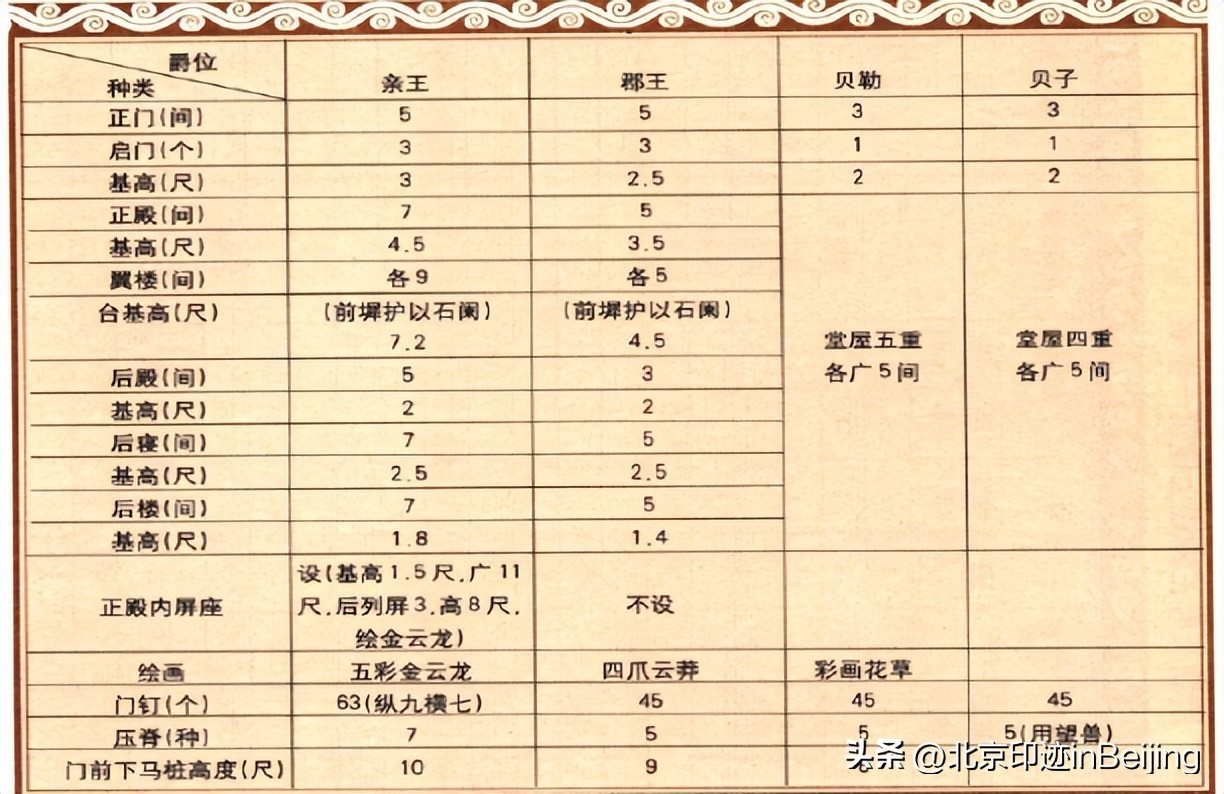 爵位
种类 亲王 郡王 贝勒 贝子
正门(间) 5 5 3 3
启门(个) 3 3 1 1
基高(尺) 3 2.5 2 2
正殿(间) 7 5
基高(尺) 4.5 3.5
翼楼(间) 各9 各5
台基高(尺) (前墀护以石阑) (前墀护以石阑)
7.2 4.5 堂屋五重 堂屋四重
后殿(间) 5 3 各广5间 各广5间
基高(尺) 2 2
后寝(间) 7 5
基高(尺) 2.5 2.5
后楼(间) 7 5
基高(尺) 1.8 1.4
设(基高1.5尺,广11
正殿内屏座 尺,后列屏3,高8尺, 不设
绘金云龙)
绘画 五彩金云龙 四爪云莽 彩画花草
门钉(个) 63(纵九横七) 45 45 45
压脊(种) 7 5 5 5(用望兽)
门前下马桩高度(尺) 10 9
头条 @北京印迹inBeijing